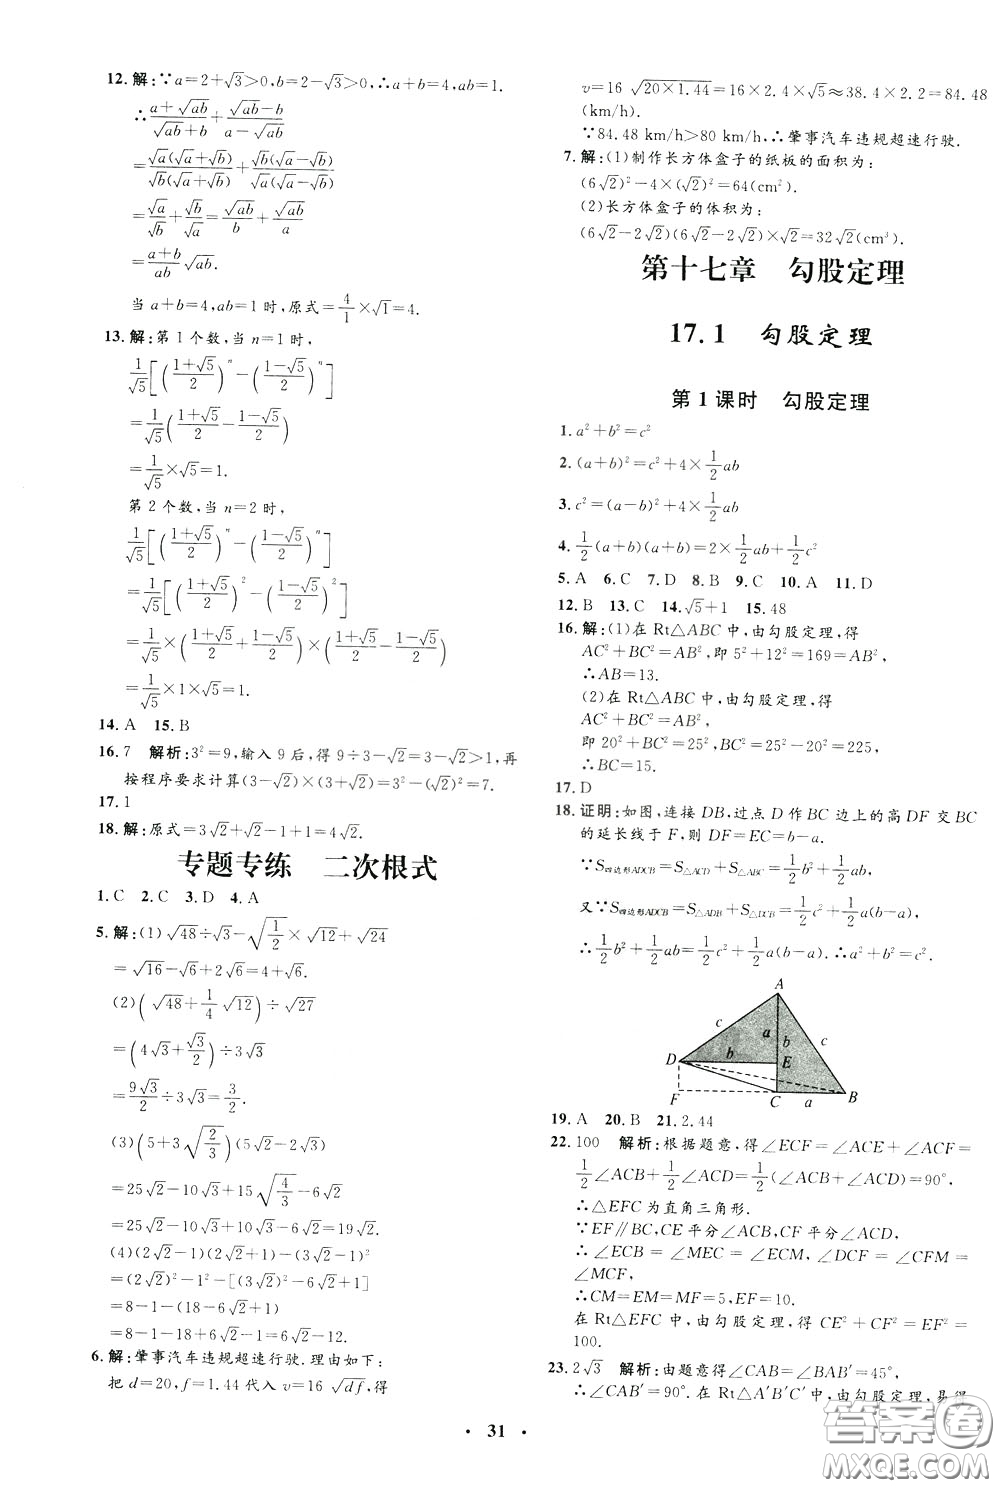 12.解:∵a=2+√3>0,b=2-√3>0,∴a+b=4,ab=1.
∴(a+√ab)/(√ab+b)+(√ab-b)/(a-√ab)
=√a(√a+√b)/√b(√a+√b)+√b(√a-√b)/√a(√a-√b)
=√a/√b+√b/√a=√ab/b+√ab/a
=(a+b)/ab √ab.
当a+b=4,ab=1时,原式=4/1×√1=4.
13.解:第1个数,当n=1时,
1/√5[((1+√5)/2)ⁿ-((1-√5)/2)ⁿ]
=1/√5((1+√5)/2-(1-√5)/2)
=1/√5×√5=1.
第2个数,当n=2时,
1/√5[((1+√5)/2)ⁿ-((1-√5)/2)ⁿ]
=1/√5[((1+√5)/2)²-((1-√5)/2)²]
=1/√5×((1+√5)/2+(1-√5)/2)×((1+√5)/2-(1-√5)/2)
=1/√5×1×√5=1.
14.A 15.B
16.7 解析:3²=9,输入9后,得9÷3-√2=3-√2>1,再
按程序要求计算(3-√2)×(3+√2)=3²-(√2)²=7.
17.1
18.解:原式=3√2+√2-1+1=4√2.
专题专练 二次根式
1.C 2.C 3.D 4.A
5.解:(1)√48÷√3-√(1/2)×√12+√24
=√16-√6+2√6=4+√6.
(2)(√48+1/4√12)÷√27
=(4√3+√3/2)÷3√3
=9√3/2÷3√3=3/2.
(3)(5+3√(2/3))(5√2-2√3)
=25√2-10√3+15√(4/3)-6√2
=25√2-10√3+10√3-6√2=19√2.
(4)(2√2-1)(2√2+1)-(1-3√2)²
=(2√2)²-1²-[(3√2)²-6√2+1]
=8-1-(18-6√2+1)
=8-1-18+6√2-1=6√2-12.
6.解:肇事汽车违规超速行驶.理由如下:
把d=20,f=1.44代入v=16√df,得
v=16√(20×1.44)=16×2.4×√5≈38.4×2.2=84.48
(km/h).
∵84.48 km/h>80 km/h,∴肇事汽车违规超速行驶.
7.解:(1)制作长方体盒子的纸板的面积为:
(6√2)²-4×(√2)²=64(cm²).
(2)长方体盒子的体积为:
(6√2-2√2)(6√2-2√2)×√2=32√2(cm³).
第十七章 勾股定理
17.1 勾股定理
第1课时 勾股定理
1.a²+b²=c²
2.(a+b)²=c²+4×1/2ab
3.c²=(a-b)²+4×1/2ab
4.1/2(a+b)(a+b)=2×1/2ab+1/2c²
5.A 6.C 7.D 8.B 9.C 10.A 11.D
12.B 13.C 14.√5+1 15.48
16.解:(1)在Rt△ABC中,由勾股定理,得
AC²+BC²=AB²,即5²+12²=169=AB²,
∴AB=13.
(2)在Rt△ABC中,由勾股定理,得
AC²+BC²=AB²,
即20²+BC²=25²,BC²=25²-20²=225,
∴BC=15.
17.D
18.证明:如图,连接DB,过点D作BC边上的高DF交BC
的延长线于F,则DF=EC=b-a.
∵S四边形ADCB=S△ACD+S△ABC=1/2b²+1/2ab,
又∵S四边形ADCB=S△ADB+S△DCB=1/2c²+1/2a(b-a),
∴1/2b²+1/2ab=1/2c²+1/2a(b-a),∴a²+b²=c².
A
c
a
b
c
b
D
E
F
C
a
B
19.A 20.B 21.2.44
22.100 解析:根据题意,得∠ECF=∠ACE+∠ACF=
1/2∠ACB+1/2∠ACD=1/2(∠ACB+∠ACD)=90°,
∴△EFC为直角三角形.
∵EF∥BC,CE平分∠ACB,CF平分∠ACD,
∴∠ECB=∠MEC=∠ECM,∠DCF=∠CFM=
∠MCF,
∴CM=EM=MF=5,EF=10.
在Rt△EFC中,由勾股定理,得CE²+CF²=EF²=
100.
23.2√3 解析:由题意得∠CAB=∠BAB′=45°,
∴∠CAB′=90°.在Rt△A′B′C′中,由勾股定理,易得
• 31 •
答案圈
MXQE.COM